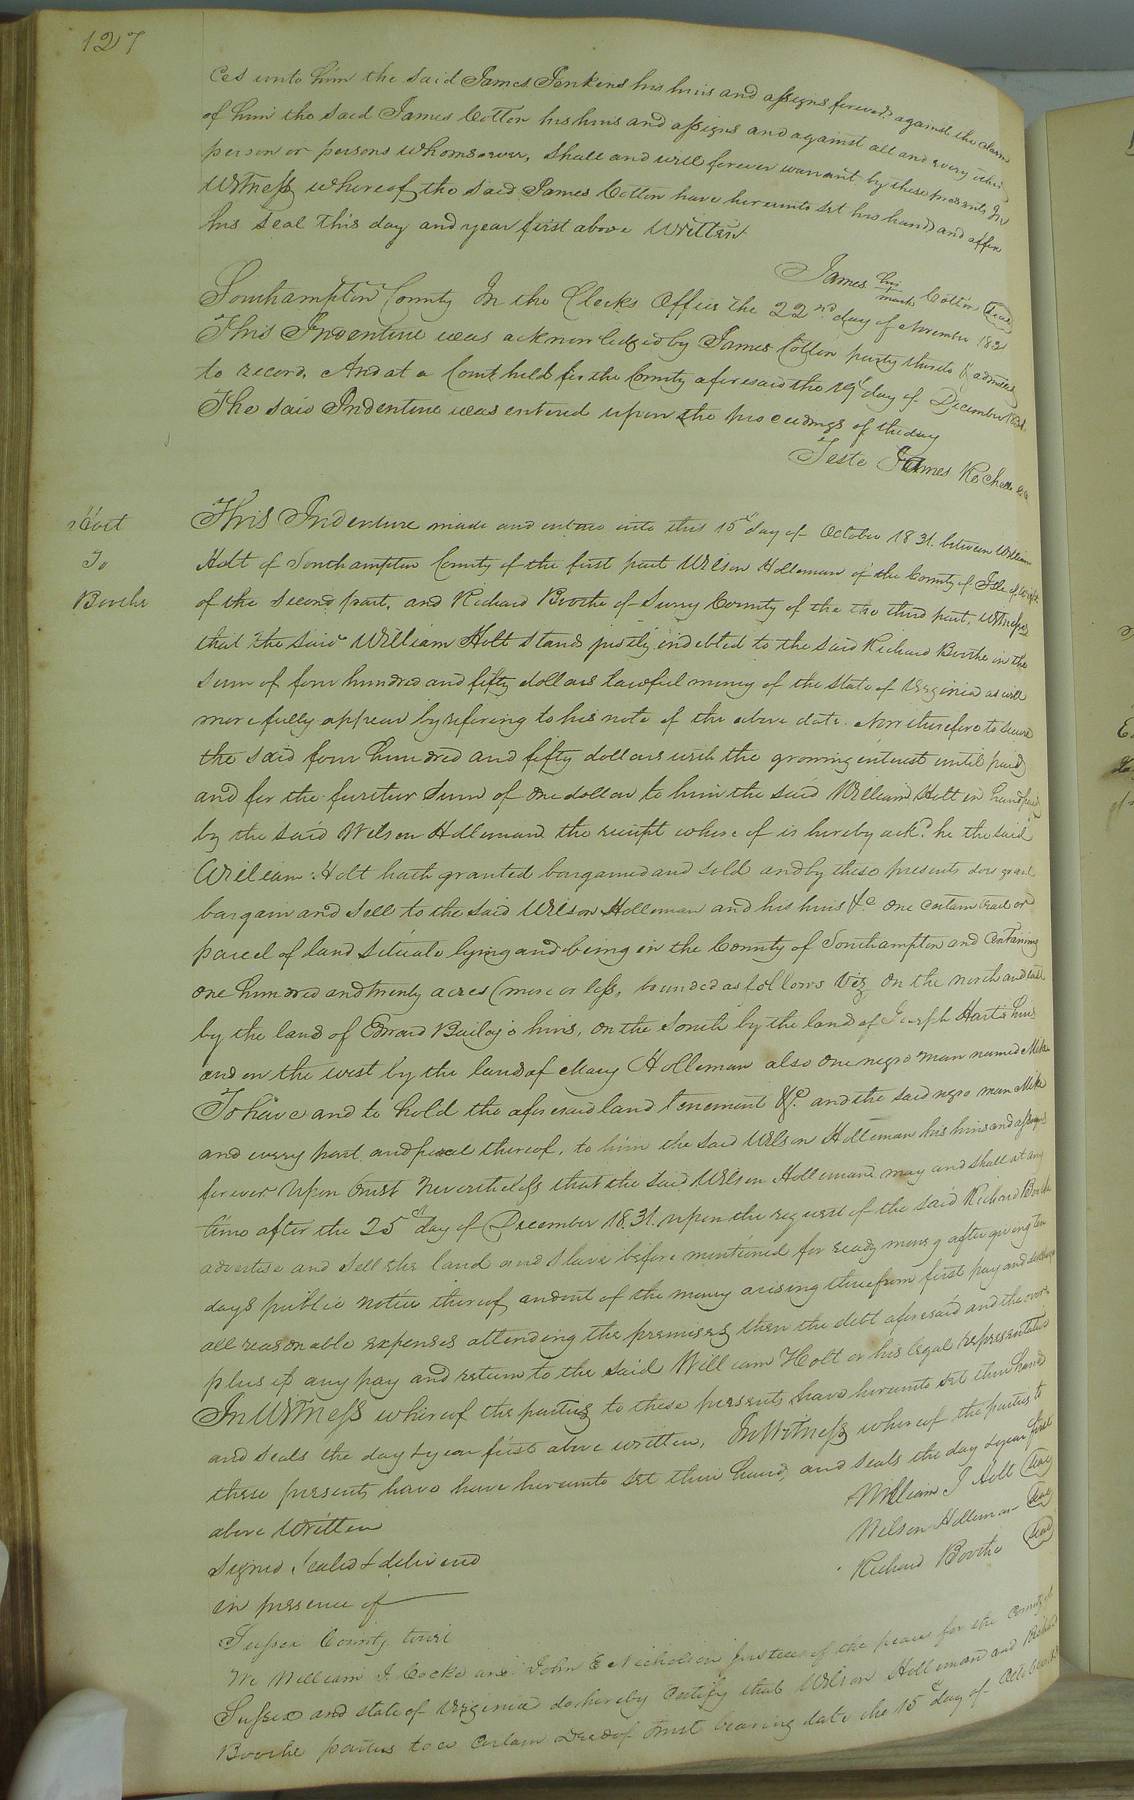 127
ces unto him the said James Jenkins his heirs and assigns forever, against the claim
of him the said James Cotton his heirs and assigns and against all and every other
person or persons whomsoever, shall and will forever warrant by these presents In
Witness whereof the said James Cotton have hereunto set his hand and affix
his seal this day and year first above Written
James his mark Cotton Seal
Southampton County In the Clerks Office the 22nd day of November 1831
This Indenture was acknowledged by James Cotton party thereto & admitted
to record, And at a Court held for the County aforesaid the 19th day of December 1831.
The said Indenture was entered upon the proceedings of the day
Teste James Rochelle
Holt
To
Boothe
This Indenture made and entered into this 15th day of October 1831. between William
Holt of Southampton County of the first part Wilson Holleman of the County of Isle of Wight
of the second part, and Richard Boothe of Surry County of the the third part, Witnesses
that the said William Holt stands justly indebted to the said Richard Boothe in the
sum of four hundred and fifty dollars lawful money of the state of Virginia as will
more fully appear by refering to his note of the above date. Now therefore to secure
the said four hundred and fifty dollars with the growing interest until paid
and for the further sum of one dollar to him the said William Holt in hand paid
by the said Wilson Holleman the receipt whereof is hereby ackd. he the said
William Holt hath granted bargained and sold and by these presents doe grant
bargain and sell to the said Wilson Holleman and his heirs &c one certain tract or
parcel of land situate lying and being in the County of Southampton and containing
one hundred and twenty acres (more or less, bounded as follows Viz On the north and east
by the land of Edward Bailey's heirs, on the South by the land of Joseph Hart's heirs
and on the west by the land of Mary Holleman also one negro man named Mike
To have and to hold the aforesaid land tenement &c. and the said negro man Mike
and every part and parcel thereof, to him the said Wilson Holleman his heirs and assigns
forever Upon Trust Nevertheless that the said Wilson Holleman may and shall at any
time after the 25th day of December 1831. upon the request of the said Richard Boothe
advertise and sell the land and slave before mentioned for ready money after giving ten
days public notice thereof, and out of the money arising therefrom first pay and discharge
all reasonable expenses attending the premises, then the debt aforesaid and the over-
plus if any pay and return to the said William Holt or his legal representative
In Witness whereof the parties to these presents have hereunto set their hand
and seals the day & year first above written, In Witness whereof the parties to
these presents have have hereunto set their hand, and seals the day & year first
above Written
William J Holt Seal
Wilson Holleman Seal
Richard Boothe Seal
Signed, Sealed & delivered
in presence of
Sussex County towit
We William J. Cocke and John E Nicholson justices of the peace for the County of
Sussex and state of Virginia do hereby certify that Wilson Holleman and Richard
Boothe parties to a certain Deed of Trust bearing date the 15th day of October